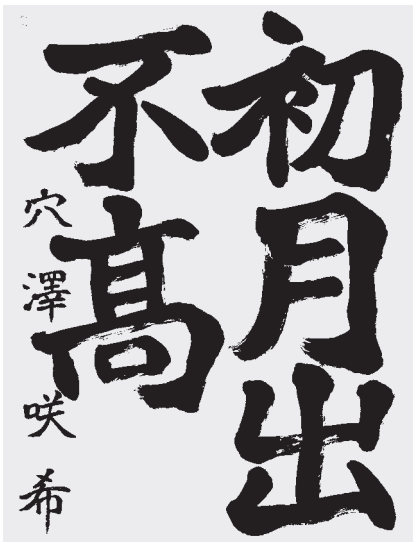 初月出
不髙
穴澤咲希